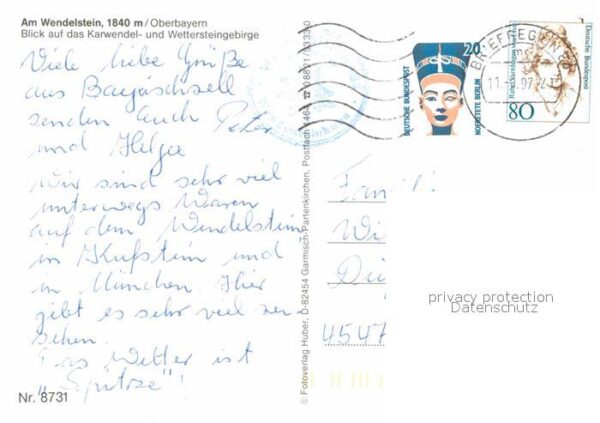 Am Wendelstein, 1840 m/Oberbayern
Blick auf das Karwendel- und Wettersteingebirge
Viele liebe Grüße
aus Bayrischzell
senden Euch Peter
und Helga
Wir sind sehr viel
unterwegs Waren
auf dem Wendelstein
in Kufstein und
in München. Hier
gibt es sehr viel zu
sehen.
Das Wetter ist
„Spitze"!
Nr. 8731
© Fotoverlag Huber, D-82454 Garmisch-Partenkirchen, Postfach 1464
DEUTSCHE BUNDESPOST
20
NOFRETETE BERLIN
80
Deutsche Bundespost
BRIEFREGION
97
Famil
Wi
4547
privacy protection
Datenschutz